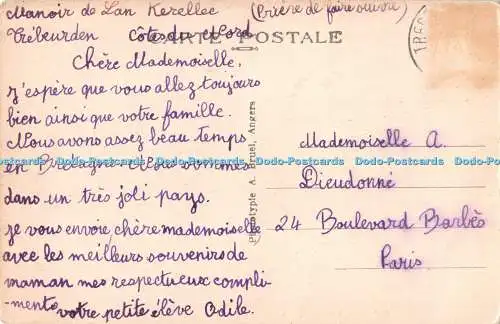 Manoir de Lan Kerellec (Prière de faire suivre)
Trébeurden Côtes du Nord
CARTE POSTALE
Chère Mademoiselle,
j'espère que vous allez toujours
bien ainsi que votre famille.
Nous avons assez beau temps
en Bretagne. Nous sommes
dans un très joli pays.
je vous envoie chère mademoiselle
avec les meilleurs souvenirs de
maman mes respectueux compli-
ments votre petite élève Odile.
Phototypie A. Bruel, Angers
Mademoiselle A.
Dieudonné
24 Boulevard Barbès
Paris
Dodo-Postcards Dodo-Postcards Dodo-Postcards Dodo-Postcards Dodo-Postcards